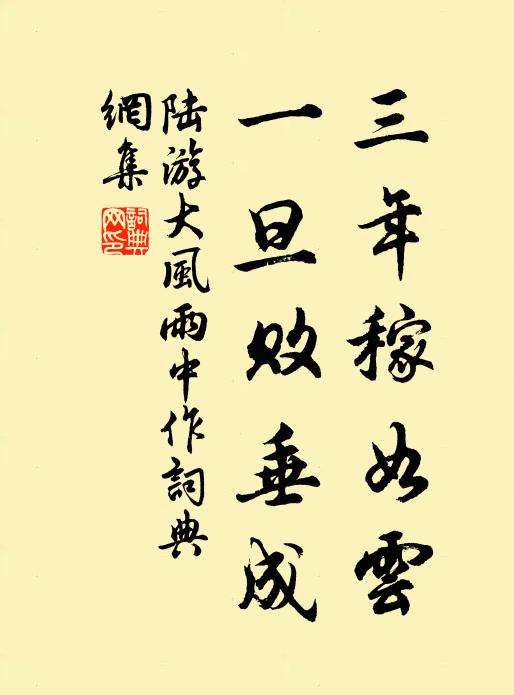 三年稼如雲
一旦敗垂成
陆游大風雨中作詞典
網集
詞典網印